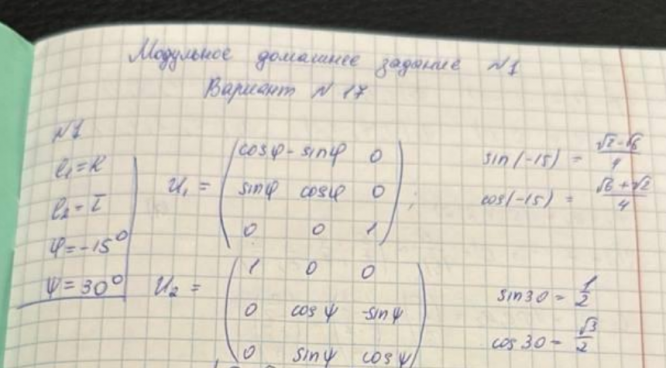 Модульное домашнее задание №1
Вариант № 17
№1
l₁ = k
l₂ = i
φ = -15°
ψ = 30°
U₁ = ( cosφ - sinφ 0
sinφ cosφ 0
0 0 1 ) ;
sin(-15) = (√2-√6)/4
cos(-15) = (√6+√2)/4
U₂ = ( 1 0 0
0 cosψ -sinψ
0 sinψ cosψ )
sin30 = 1/2
cos30 = √3/2